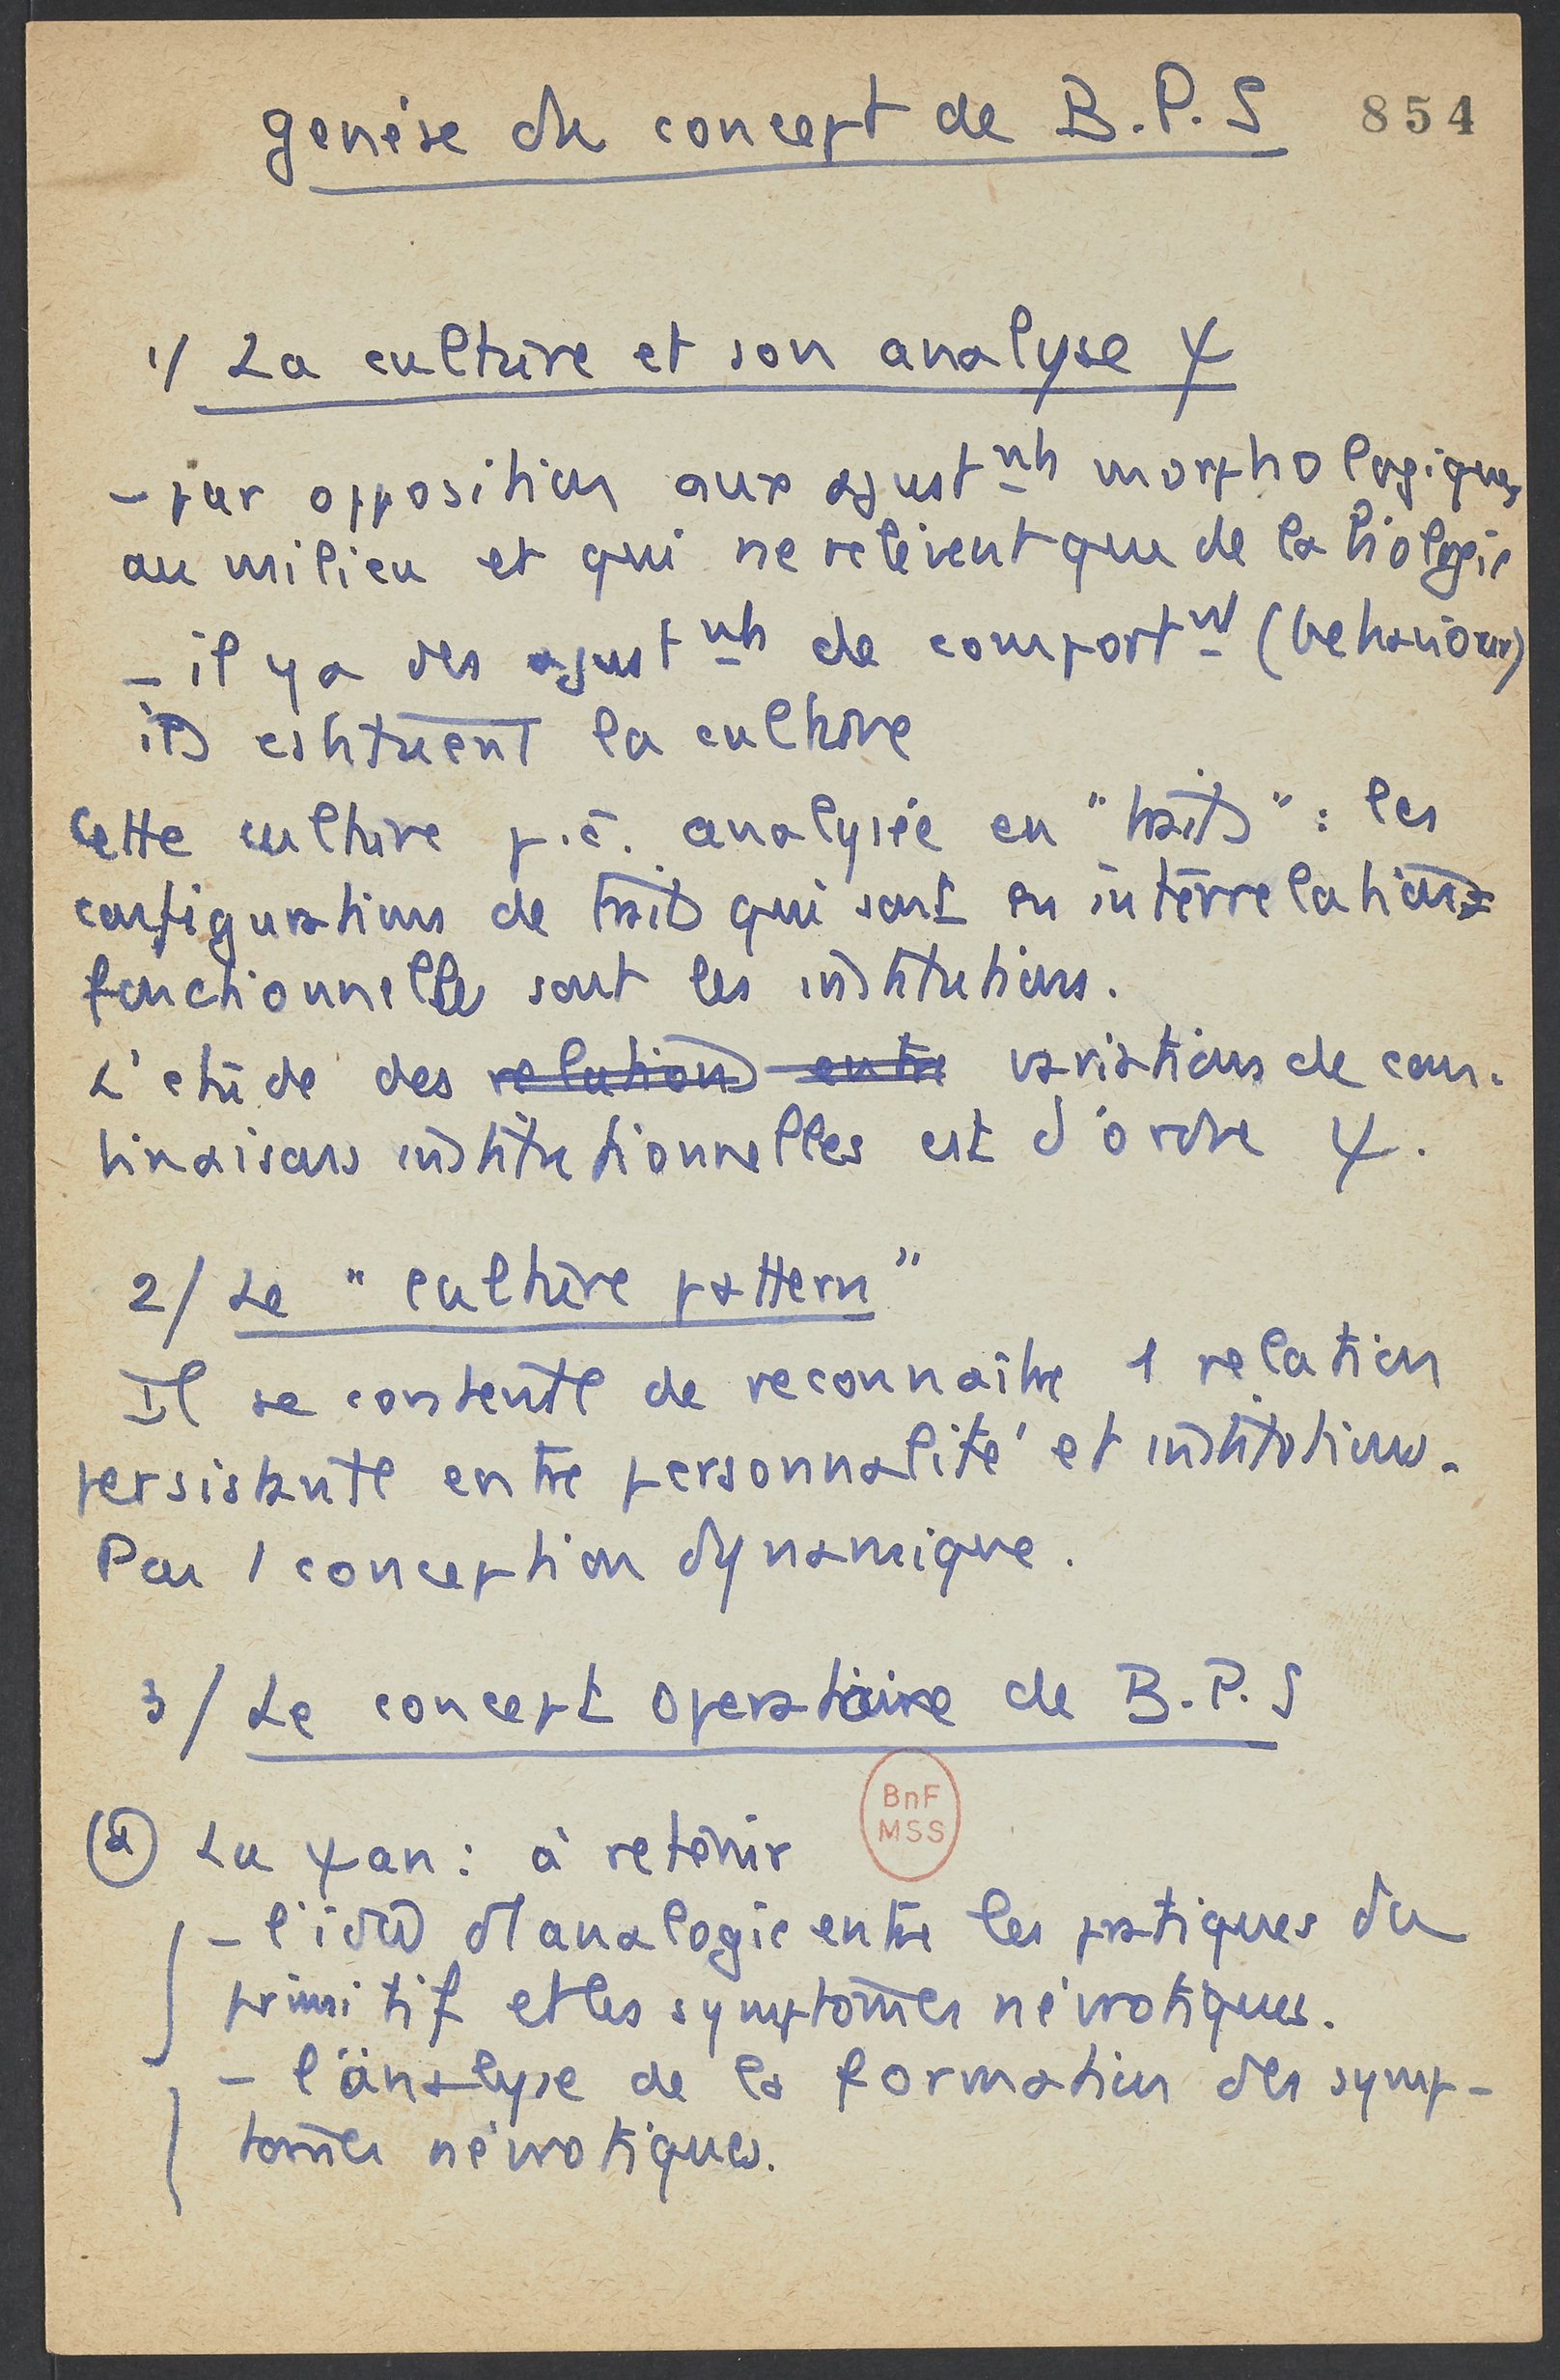 genèse du concept de B.P.S 854
1/ La culture et son analyse ψ
- par opposition aux ajustnts morphologiques
au milieu et qui ne relèvent que de la biologie
- il y a des ajustnts de comportnt (behaviour)
ils cstituent la culture
Cette culture p.ê. analysée en "traits" : les
configurations de traits qui sont en interrelations
fonctionnelles sont les institutions.
L'étude des relations entre variations de com-
binaisons institutionnelles est d'ordre ψ.
2/ Le "culture pattern"
Il se contente de reconnaître 1 relation
persistante entre personnalité et institutions.
Pas 1 conception dynamique.
3/ Le concept operatoire de B.P.S
BnF
MSS
(a) La ψan : à retenir
- l'idée d'analogie entre les pratiques du
primitif et les symptômes névrotiques.
- l'analyse de la formation des symp-
tômes névrotiques.